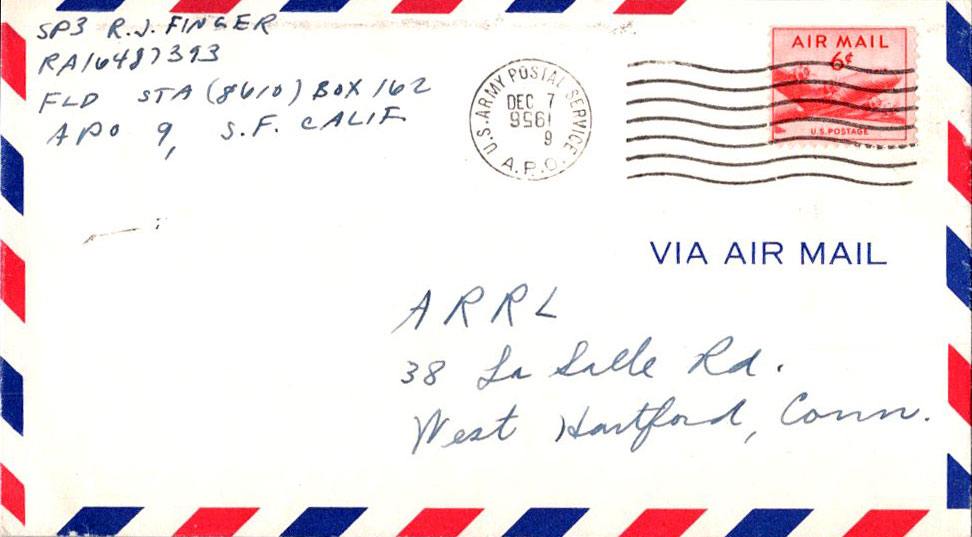 SP3 R.J. FINGER
RA16487393
FLD STA (8610) BOX 162
APO 9, S.F. CALIF
U.S. ARMY POSTAL SERVICE
DEC 7
1956
9
A.P.O.
AIR MAIL
6¢
U.S. POSTAGE
VIA AIR MAIL
ARRL
38 La Salle Rd.
West Hartford, Conn.